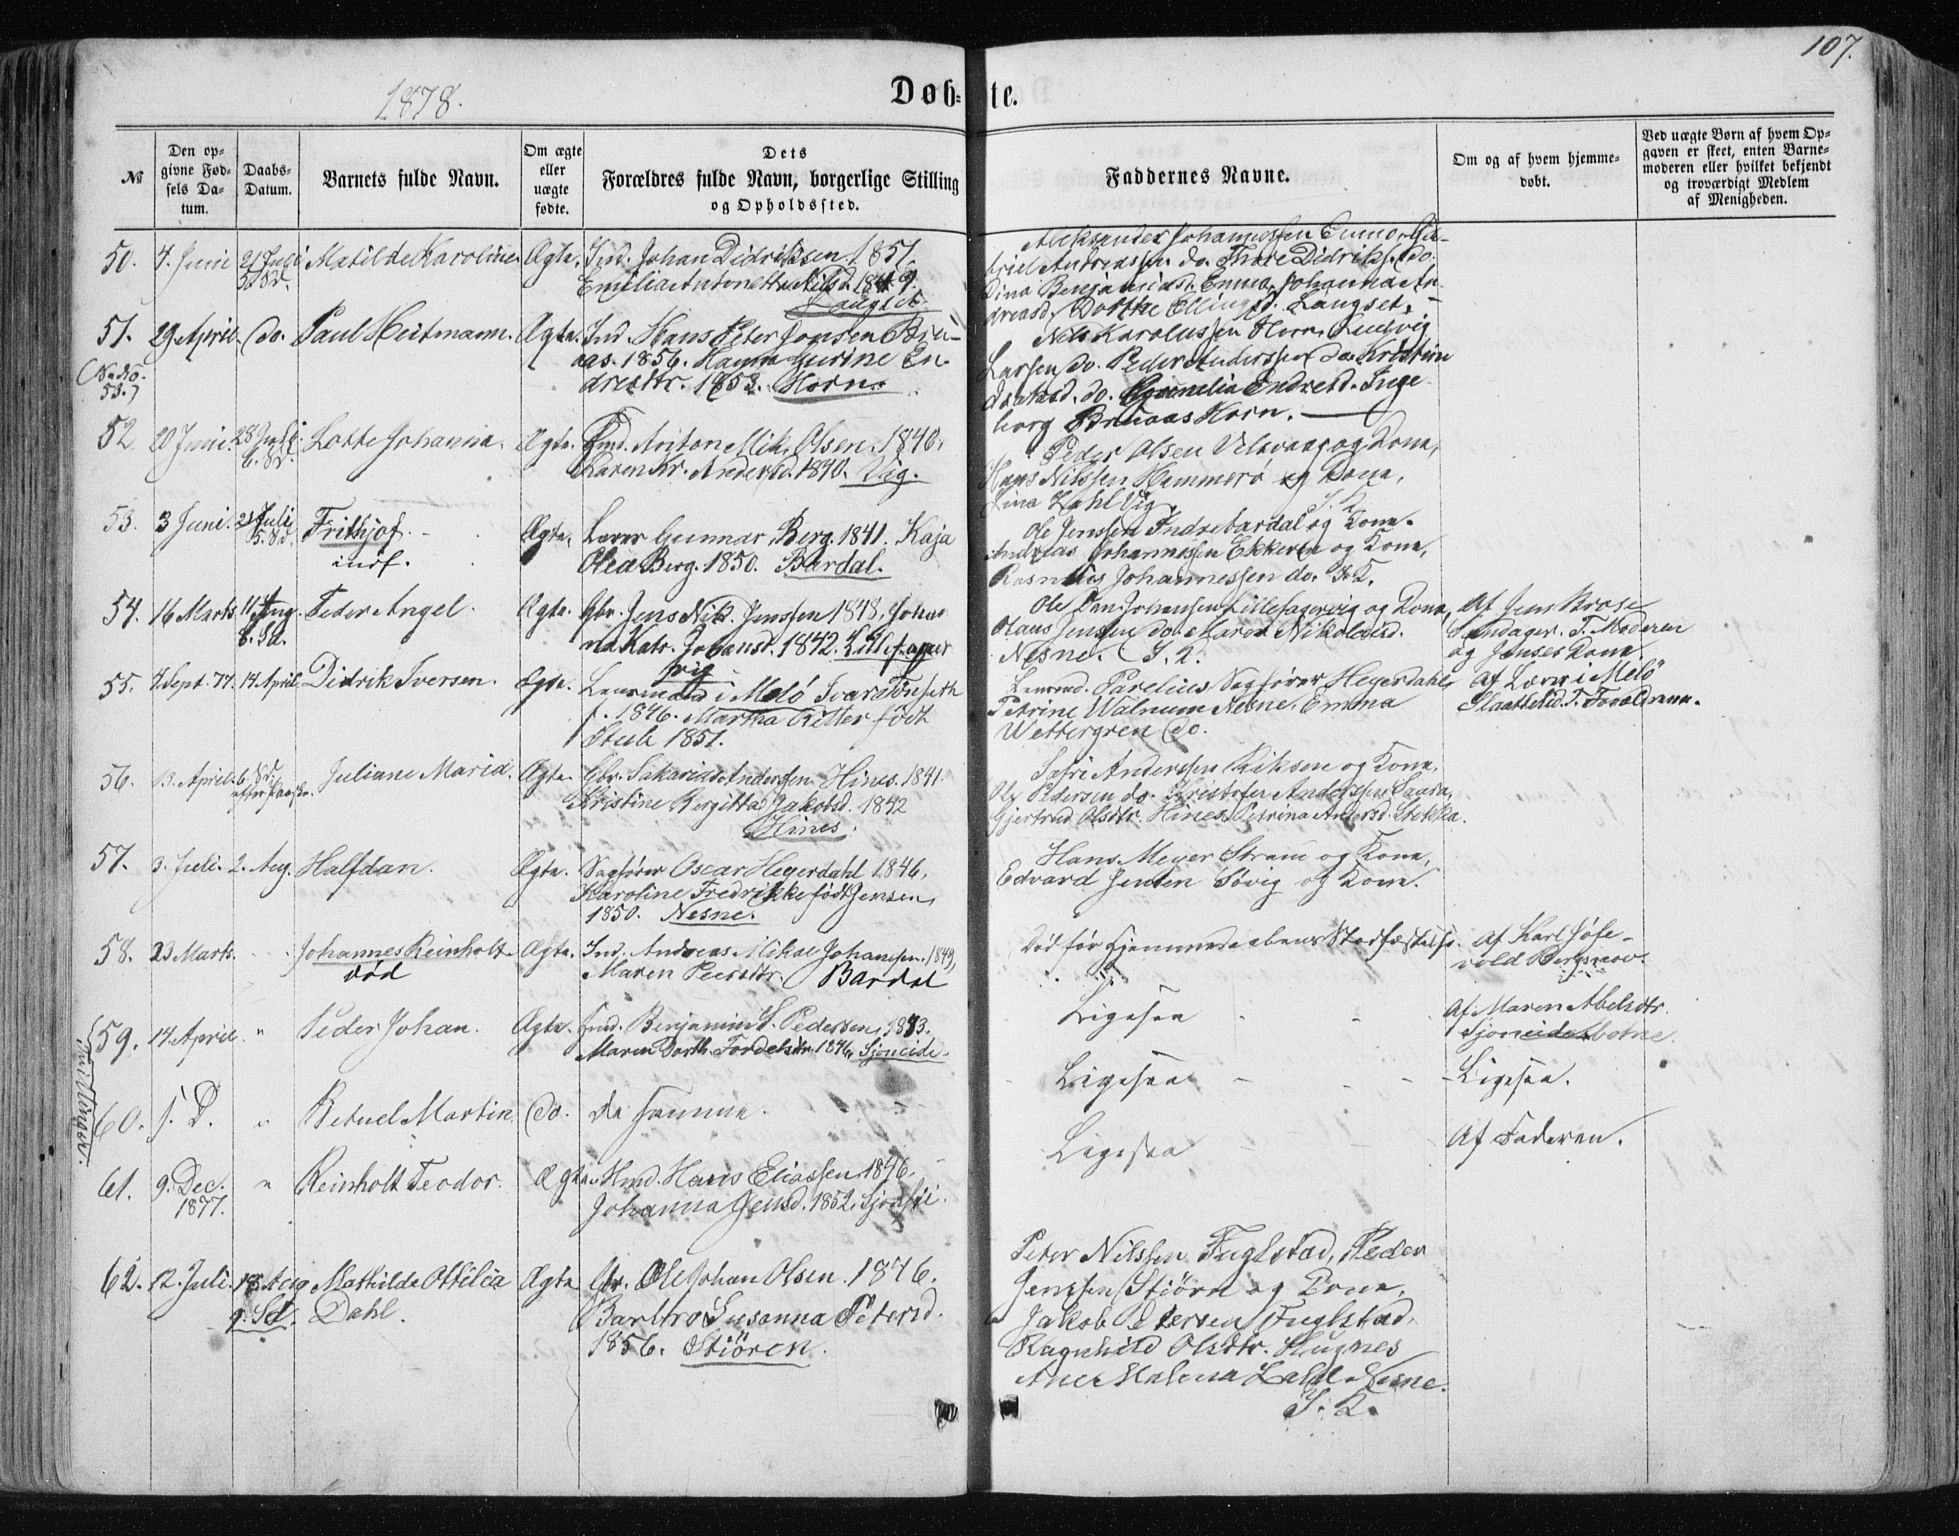 107.
1878.
Døb-te.
№
Den opgivne Fødsels Datum.
Daabs-Datum.
Barnets fulde Navn.
Om ægte eller uægte fødte.
Dets Forældres fulde Navn, borgerlige Stilling og Opholdssted.
Faddernes Navne.
Om og af hvem hjemmedøbt.
Ved uægte Børn af hvem Opgaven er skeet, enten Barnemoderen eller hvilket bekjendt og troværdigt Medlem af Menigheden.
50. 7. Juni 21 Juli 5. Sd. Matilde Karoline Ægte. Ind. Johan Didriksen 1851.
Emilie Antonette Nilsd. 1849.
Langset
Aleksander Johannessen Enmo, Ga-
briel Andreassen do. Thore Didriks. do.
Dina Benjamind. Enmo, Johanna An-
dreasd. Dorthe Ellingsd. Langset.
51. 29 April. do. Paul Heitmann. Ægte. Ind. Hans Peter Jonsen Bru-
aas. 1856. Hanna Gurine En-
dresdtr. 1853. Horn.
(Se No. 53.)
Nils Karolussen Horn. Ludvig
Larsen do. Peder Anderssen do. Kristine
Isaksd. do. Cornelia Endresd. Inge-
borg Bruaas Horn.
52. 20 Juni. 28 Juli. 6. Sd. Lotte Johanna. Ægte. Ind. Anton Mik. Olsen. 1840.
Karen Kr. Andersd. 1840. Vig.
Peder Olsen Velsvaag og Kona,
Hans Nilssen Hammerø og Kona,
Lina Dahl Vig. I. K.
53. 3 Juni. 21 Juli 5. Sd. Frithjof. Ægte. Lærer Gunnar Berg. 1841. Kaja
indf. Olea Berg. 1850. Bardal.
Ole Jenssen Indrebardal og Kona.
Andreas Johannessen Ekkeren og Kona,
Rasmus Johannessen do. I. K.
54. 16 Marts 11 Aug. 8. Sd. Peder Angel. Ægte. Gbr. Jens Nik. Jenssen 1848, Johan-
na Katr. Johansd. 1842. Lillefager
vig
Ole Dan. Johansen Lillefagervig og Kona,
Olaus Jensen do. Maren Nikolaisd.
Nesne. I. K.
Af Jens Brose
Sandager. T. Moderen
og Jenses Kona.
55. 7. Sept. 77. 14 April. Didrik Iversen. Ægte. Lensmand i Melö Ivar Tønseth
f. 1846. Martha Ritter født
Stub 1851.
Lensmd. Parelius Sagfører Heyerdahl
Petrine Walnum Nesne. Emma
Wettergren do.
Af Lærer i Melö
Slaattelid. T. Forældrene.
56. 13. April. 6. Sd. efter Paaske. Juliane Marie. Ægte. Gbr. Sakarias Andersen Hines. 1841
Kristine Bergitta Jakobsd. 1842
Hines.
Anderssen Riksen og Kona,
Ole Pedersen do. Kristofer Anderssen Saura,
Gjertrud Olsdtr. Hines, Petrina Andersd. Stokka.
57. 3. Juli. 2. Aug. Halfdan. Ægte. Sagfører Oscar Heyerdahl 1846,
Karoline Fredrikke født Jensen,
1850. Nesne.
Hans Meyer Strøm og Kona,
Edvard Jensen Søvig og Kona.
58. 23 Marts. Johannes Reinholt Ægte. Ind. Andreas Mikal Johansen. 1849,
død Maren Peersdtr. Bardal
Død før Hjemmedaabens Stadfæstelse.
Af Karl Jøse-
vold Bergsmov.
59. 14. April. " Peder Johan. Ægte. Ind. Benjamin S. Pedersen, 1843.
Maren Dorth. Fordelsdtr. 1846, Sjoneide.
Ligesaa
Af Maren Abelsdtr.
Sjoneidsbotne.
Tvillinger.
60. s. D. " Betuel Martin. do. de samme.
Ligesaa - Ligesaa.
61. 9. Dec. 1877. " Reinholt Teodor. Ægte. Hmd. Hans Eliassen 1846,
Johanna Jensd. 1852.
Ligesaa
Af Faderen.
62. 12. Juli. 18 Aug 9. Sd. Mathilde Ottilia Ægte Gbr. Ole Johan Olsen. 1846.
Dahl. Barbro Susanna Petersd.
1856. Stiören.
Peter Nilssen Fuglstad, Peder
Jenssen Stiörn og Kona,
Jakob Petersen Fuglstad,
Ragnhild Olsdtr. Hugnes
Ane Malena Dahl Nesne.
I. K.